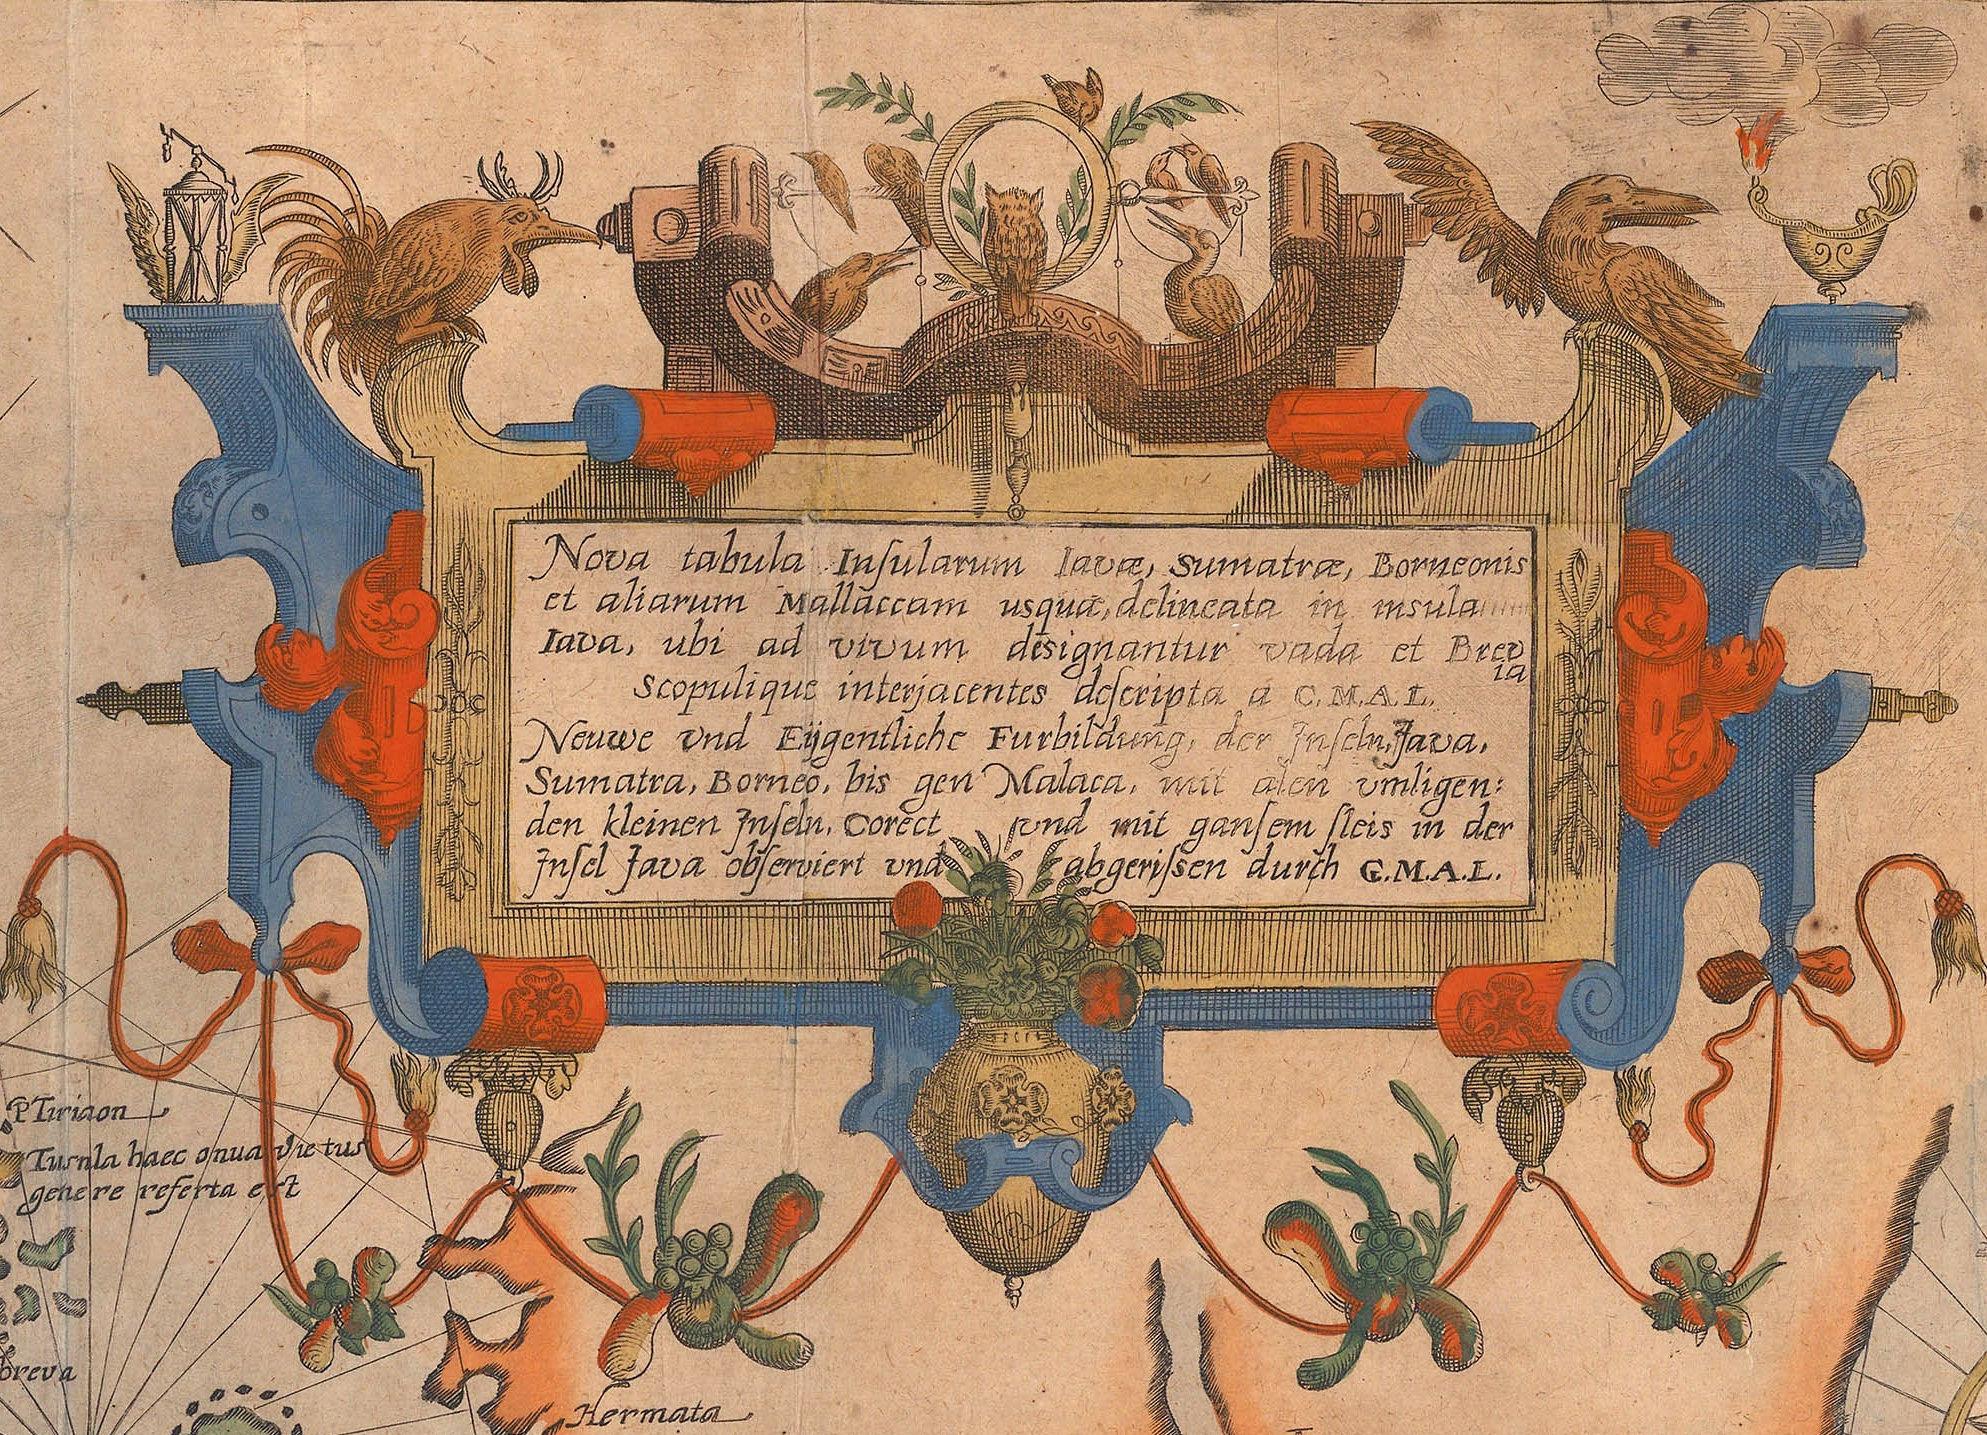 Nova tabula Insularum Iavæ, Sumatræ, Borneonis
et aliarum Mallaccam usque, delineata in insula
Iava, ubi ad vivum designantur vada et Brev
ia
Scopulique interjacentes descripta a G.M.A.L.
Neuwe vnd Eijgentliche Furbildung, der Inseln, Java,
Sumatra, Borneo, bis gen Malaca, mit alen vmligen:
den kleinen Inseln, Corect vnd mit gansem fleis in der
Insel Java observiert vnd abgerissen durch G.M.A.L.
P Tiriaon
haec
genere referta est
breva
Hermata